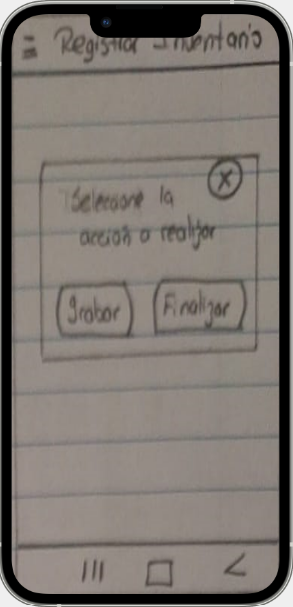 Registrar Inventario
Seleccione la
acción a realizar
Grabar Finalizar